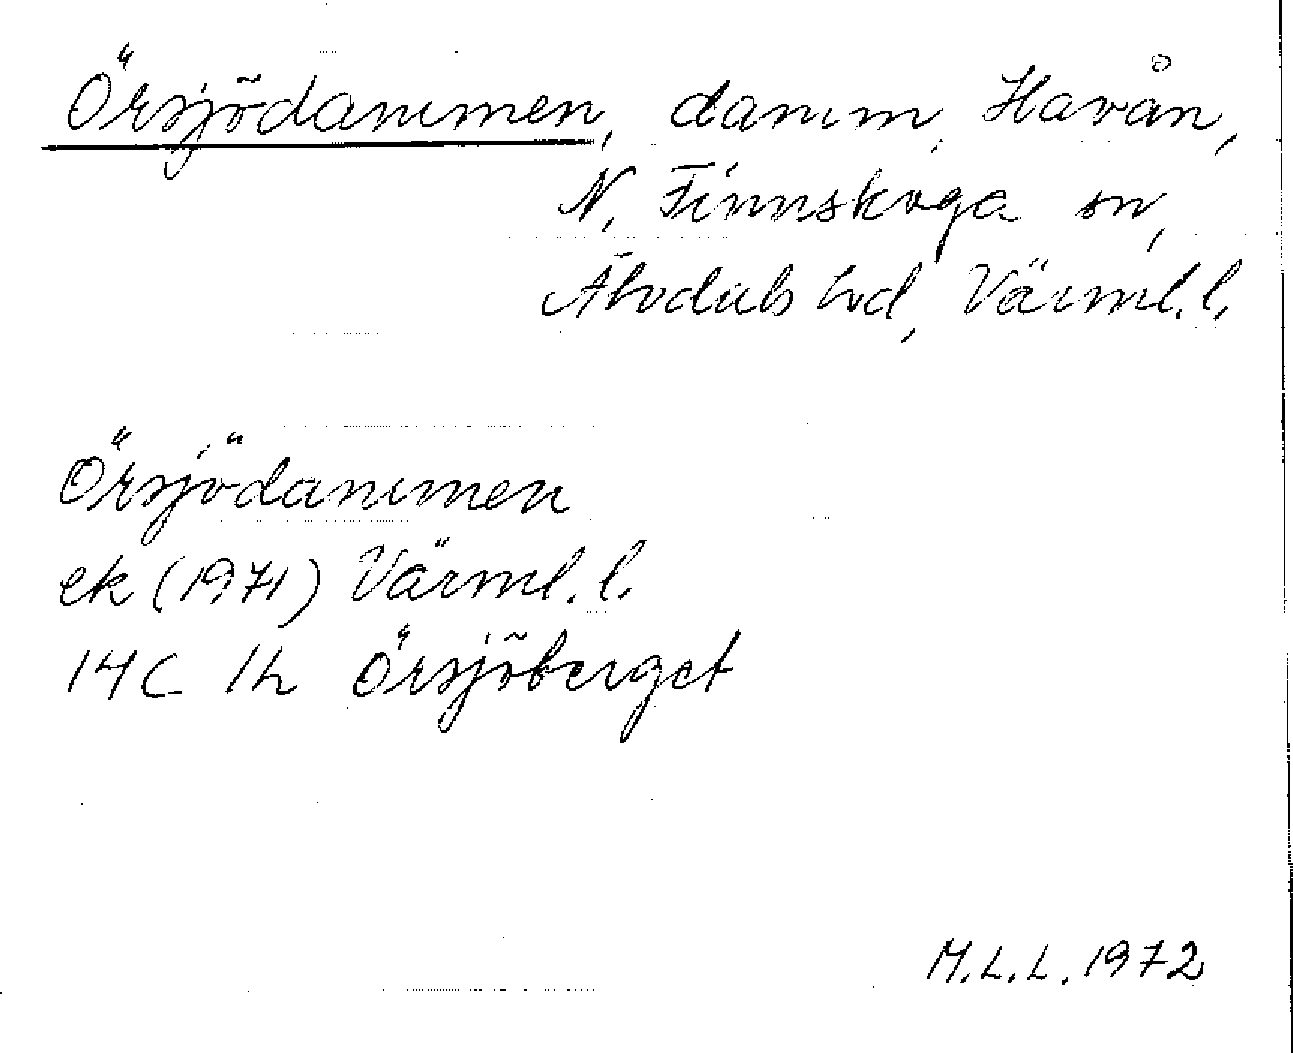 Örsjödammen, damm, Havån,
N. Finnskoga sn,
Älvdals hd, Värml. l.
Örsjödammen
ek (1971) Värml. l.
14C 1h Örsjöberget
M.L.L. 1972